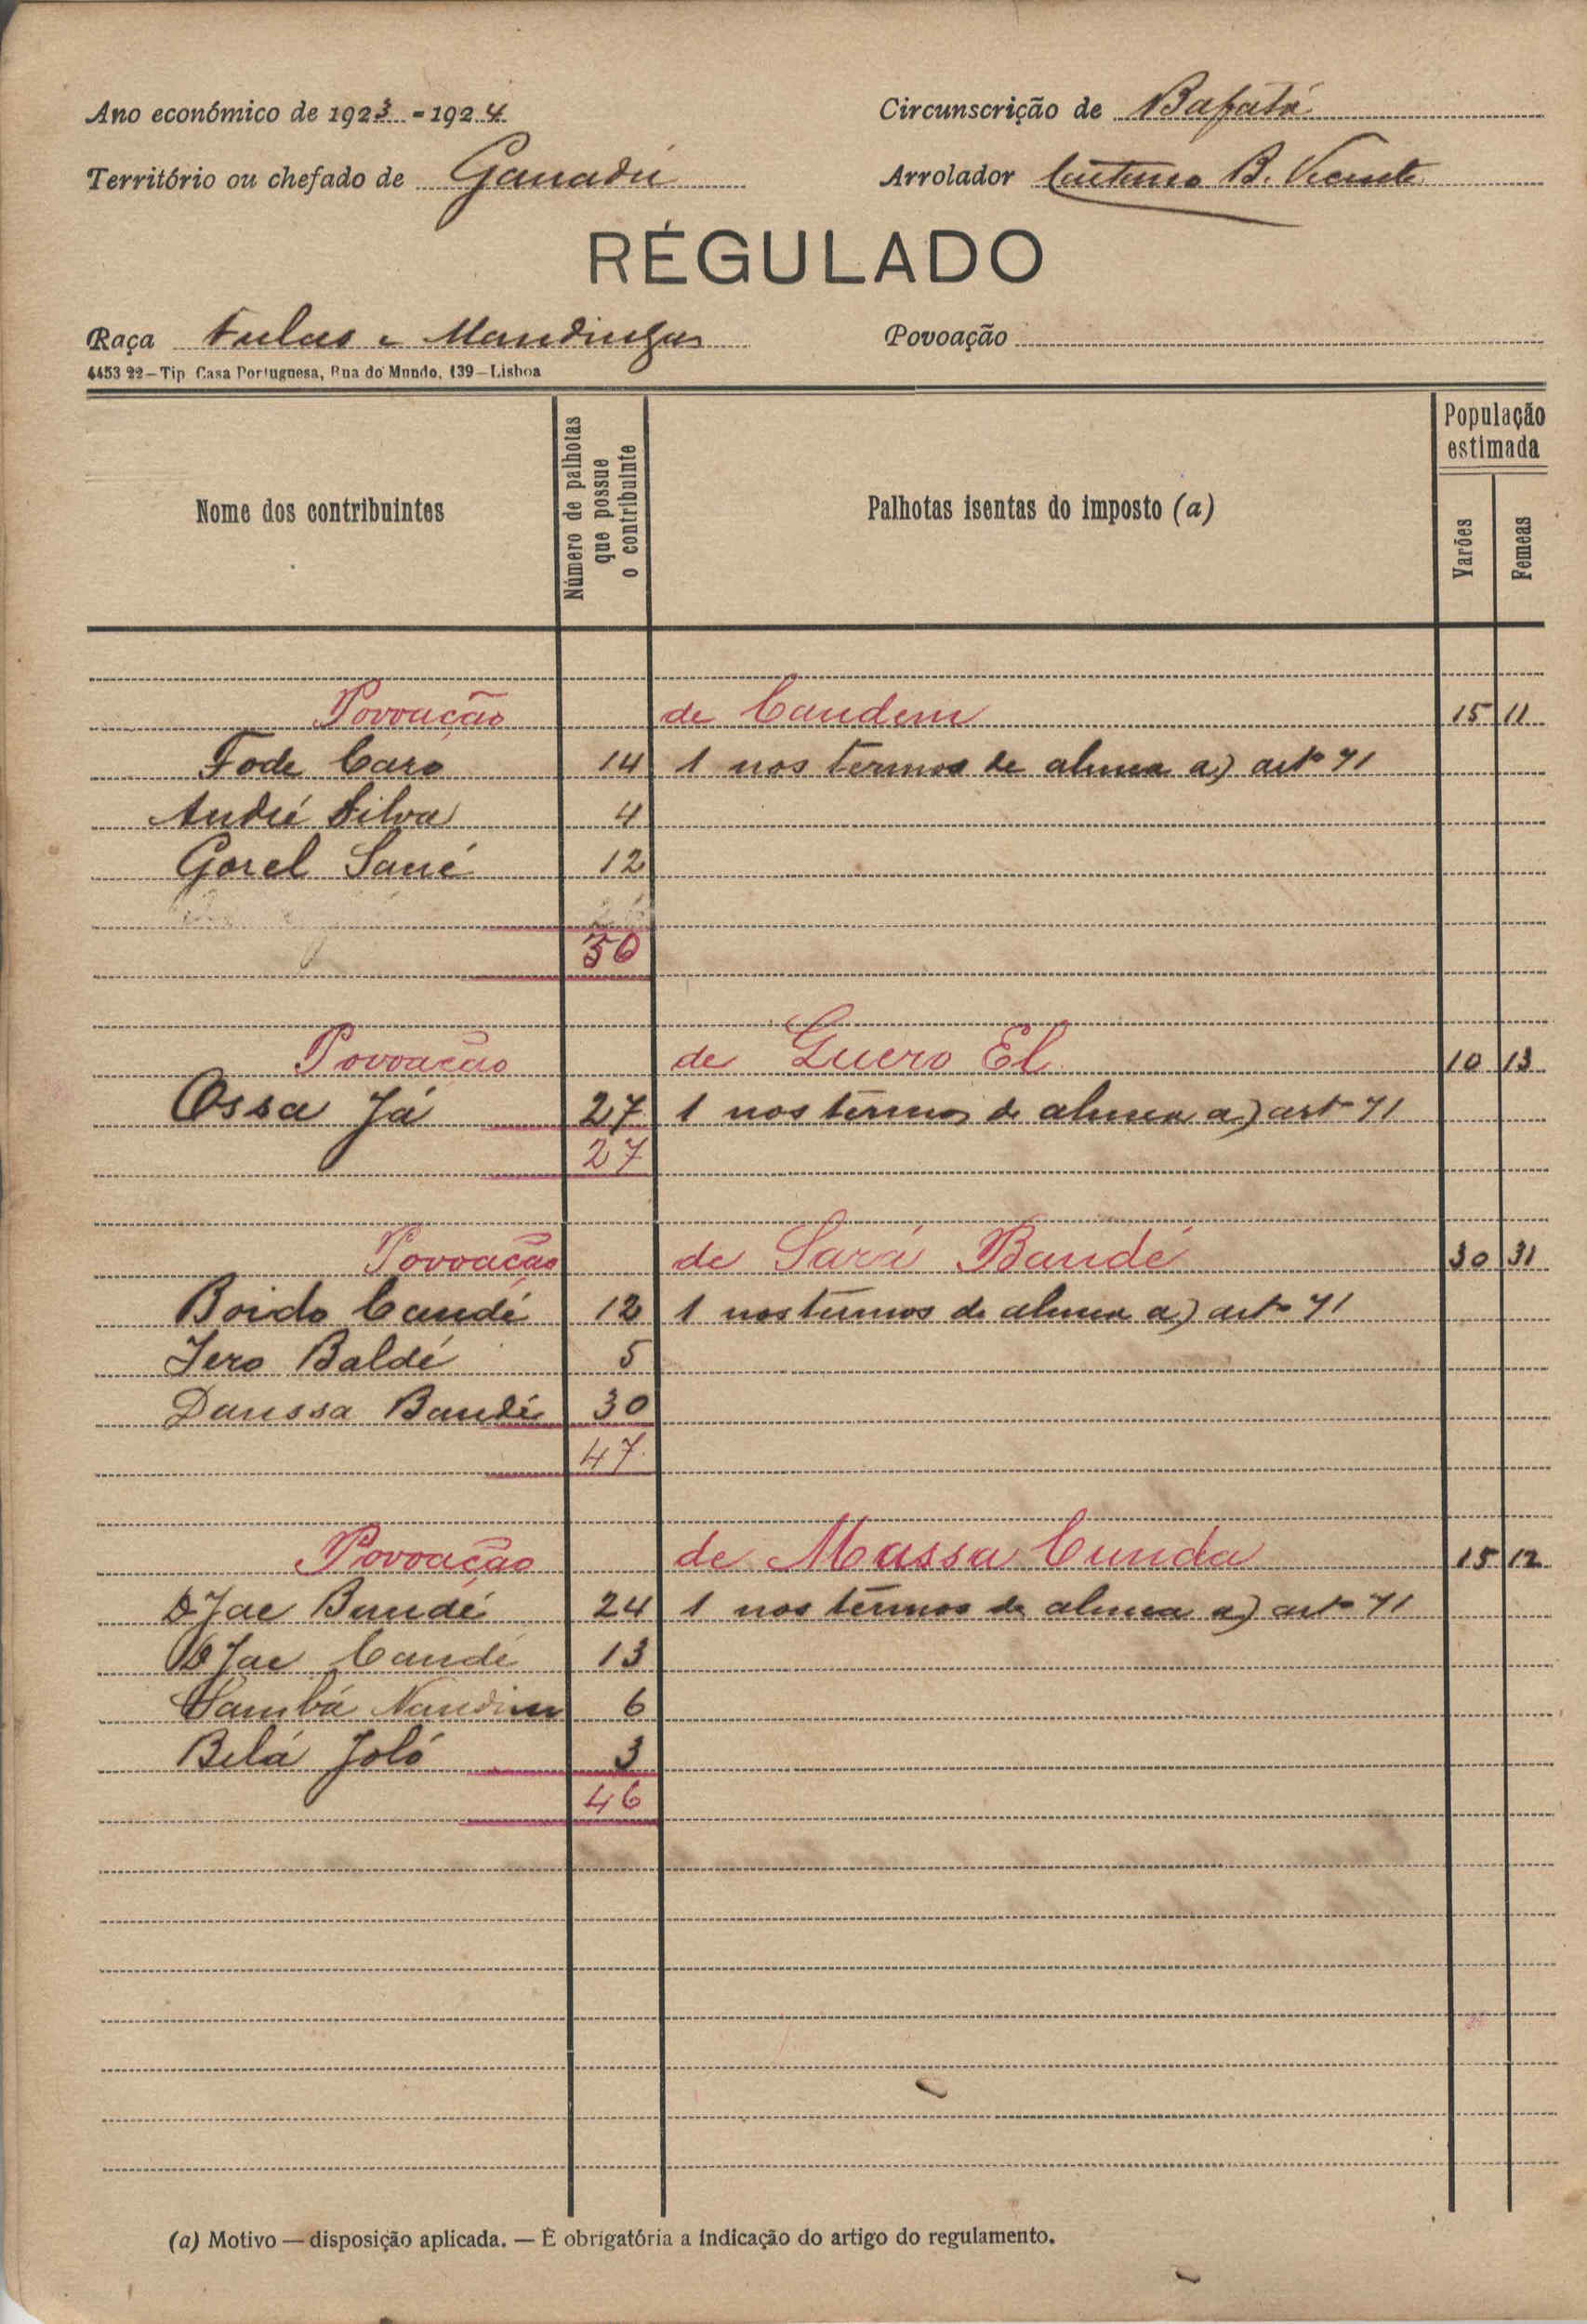 Ano económico de 1923-1924 Circunscrição de Bafatá
Território ou chefado de Ganadú Arrolador Caetano B. Vicente
RÉGULADO
Raça Fulas e Mandingas Povoação
4453 22—Tip Casa Portuguesa, Rua do Mundo, 139—Lisboa
Nome dos contribuintes
Número de palhotas que possue o contribuinte
Palhotas isentas do imposto (a)
População estimada
Varões
Femeas
Povoação de Candem 15 11
Fode Caro 14 1 nos termos de alinea a) artº 71
André Silva 4
Gorel Sané 12
30
Povoação de Guero El 10 13
Ossa Já 27 1 nos termos de alinea a) artº 71
27
Povoação de Sará Bandé 30 31
Boido Candé 12 1 nos termos de alinea a) artº 71
Jero Baldé 5
Danssa Bandé 30
47
Povoação de Massa Cunda 15 12
DJae Bandé 24 1 nos termos de alinea a) artº 71
DJae Candé 13
Sambá 6
Belá Joló 3
46
(a) Motivo — disposição aplicada. — É obrigatória a indicação do artigo do regulamento.